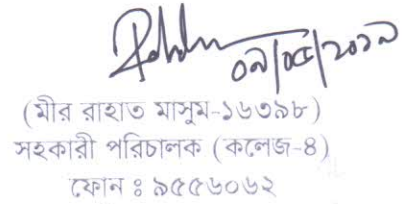 ০৯/০৫/২০১৯
(মীর রাহাত মাসুম-১৬৩৯৮)
সহকারী পরিচালক (কলেজ-৪)
ফোন ঃ ৯৫৫৬০৬২